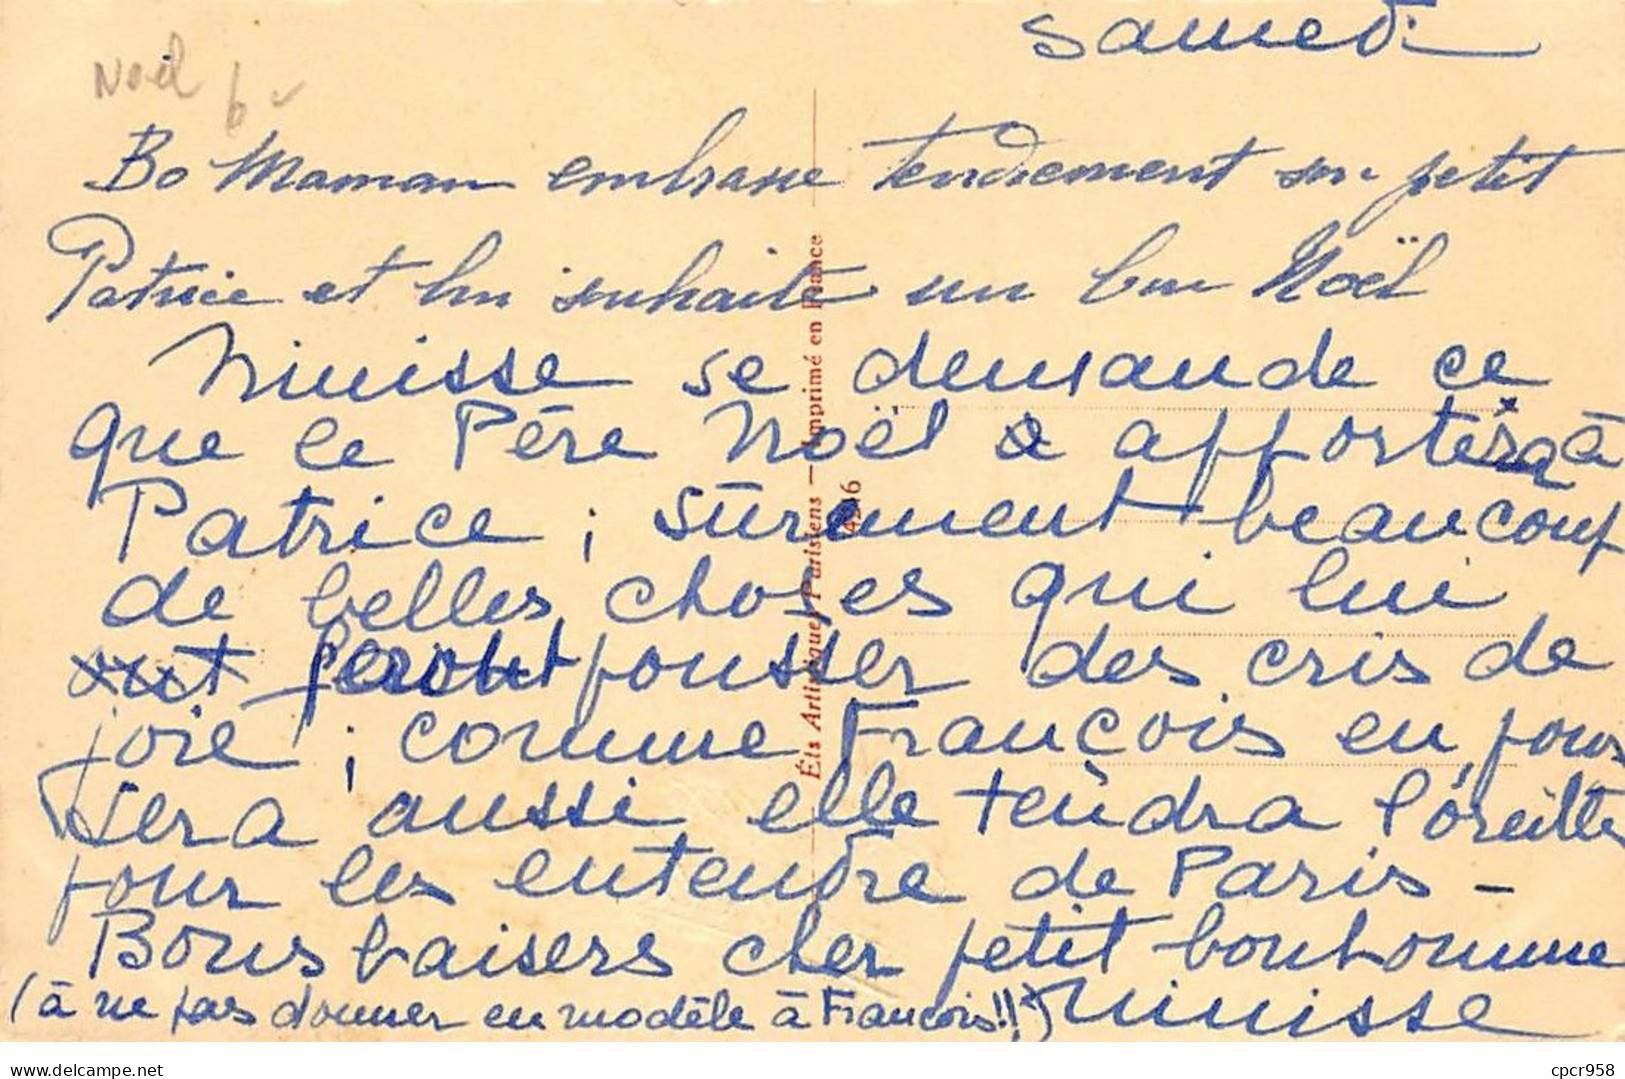 samedi
Noël 6
Bo Maman embrasse tendrement son petit
Patrice et lui souhaite un bon Noël
Ninisse se demande ce
que le Père Noël a apportera à
Patrice ; sûrement beaucoup
de belles choses qui lui
ont feront pousser des cris de
joie ; comme François en pous
sera aussi elle tendra l'oreille
pour les entendre de Paris -
Bons baisers cher petit bonhomme
(à ne pas donner en modèle à François!!) Ninisse
Éts Artistiques Parisiens — Imprimé en France
delcampe.net
cpcr958